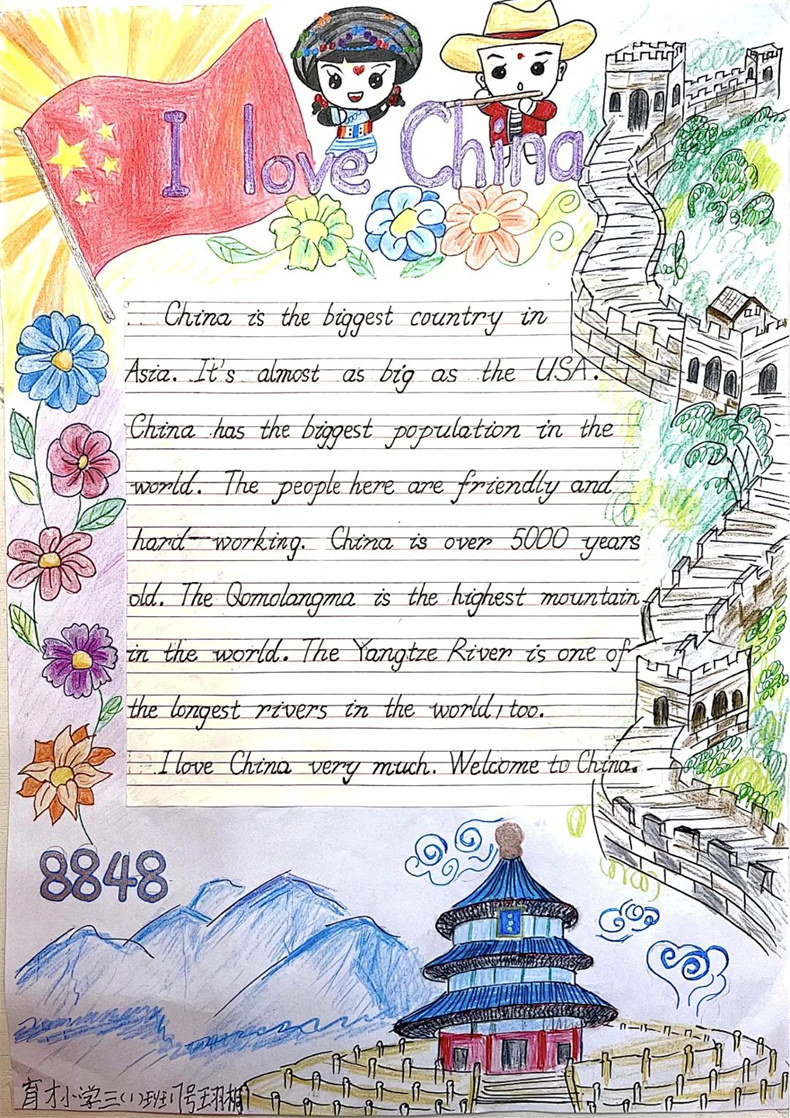 I love China
China is the biggest country in
Asia. It's almost as big as the USA.
China has the biggest population in the
world. The people here are friendly and
hard-working. China is over 5000 years
old. The Qomolangma is the highest mountain
in the world. The Yangtze River is one of
the longest rivers in the world, too.
I love China very much. Welcome to China.
8848
育才小学三(1)班17号